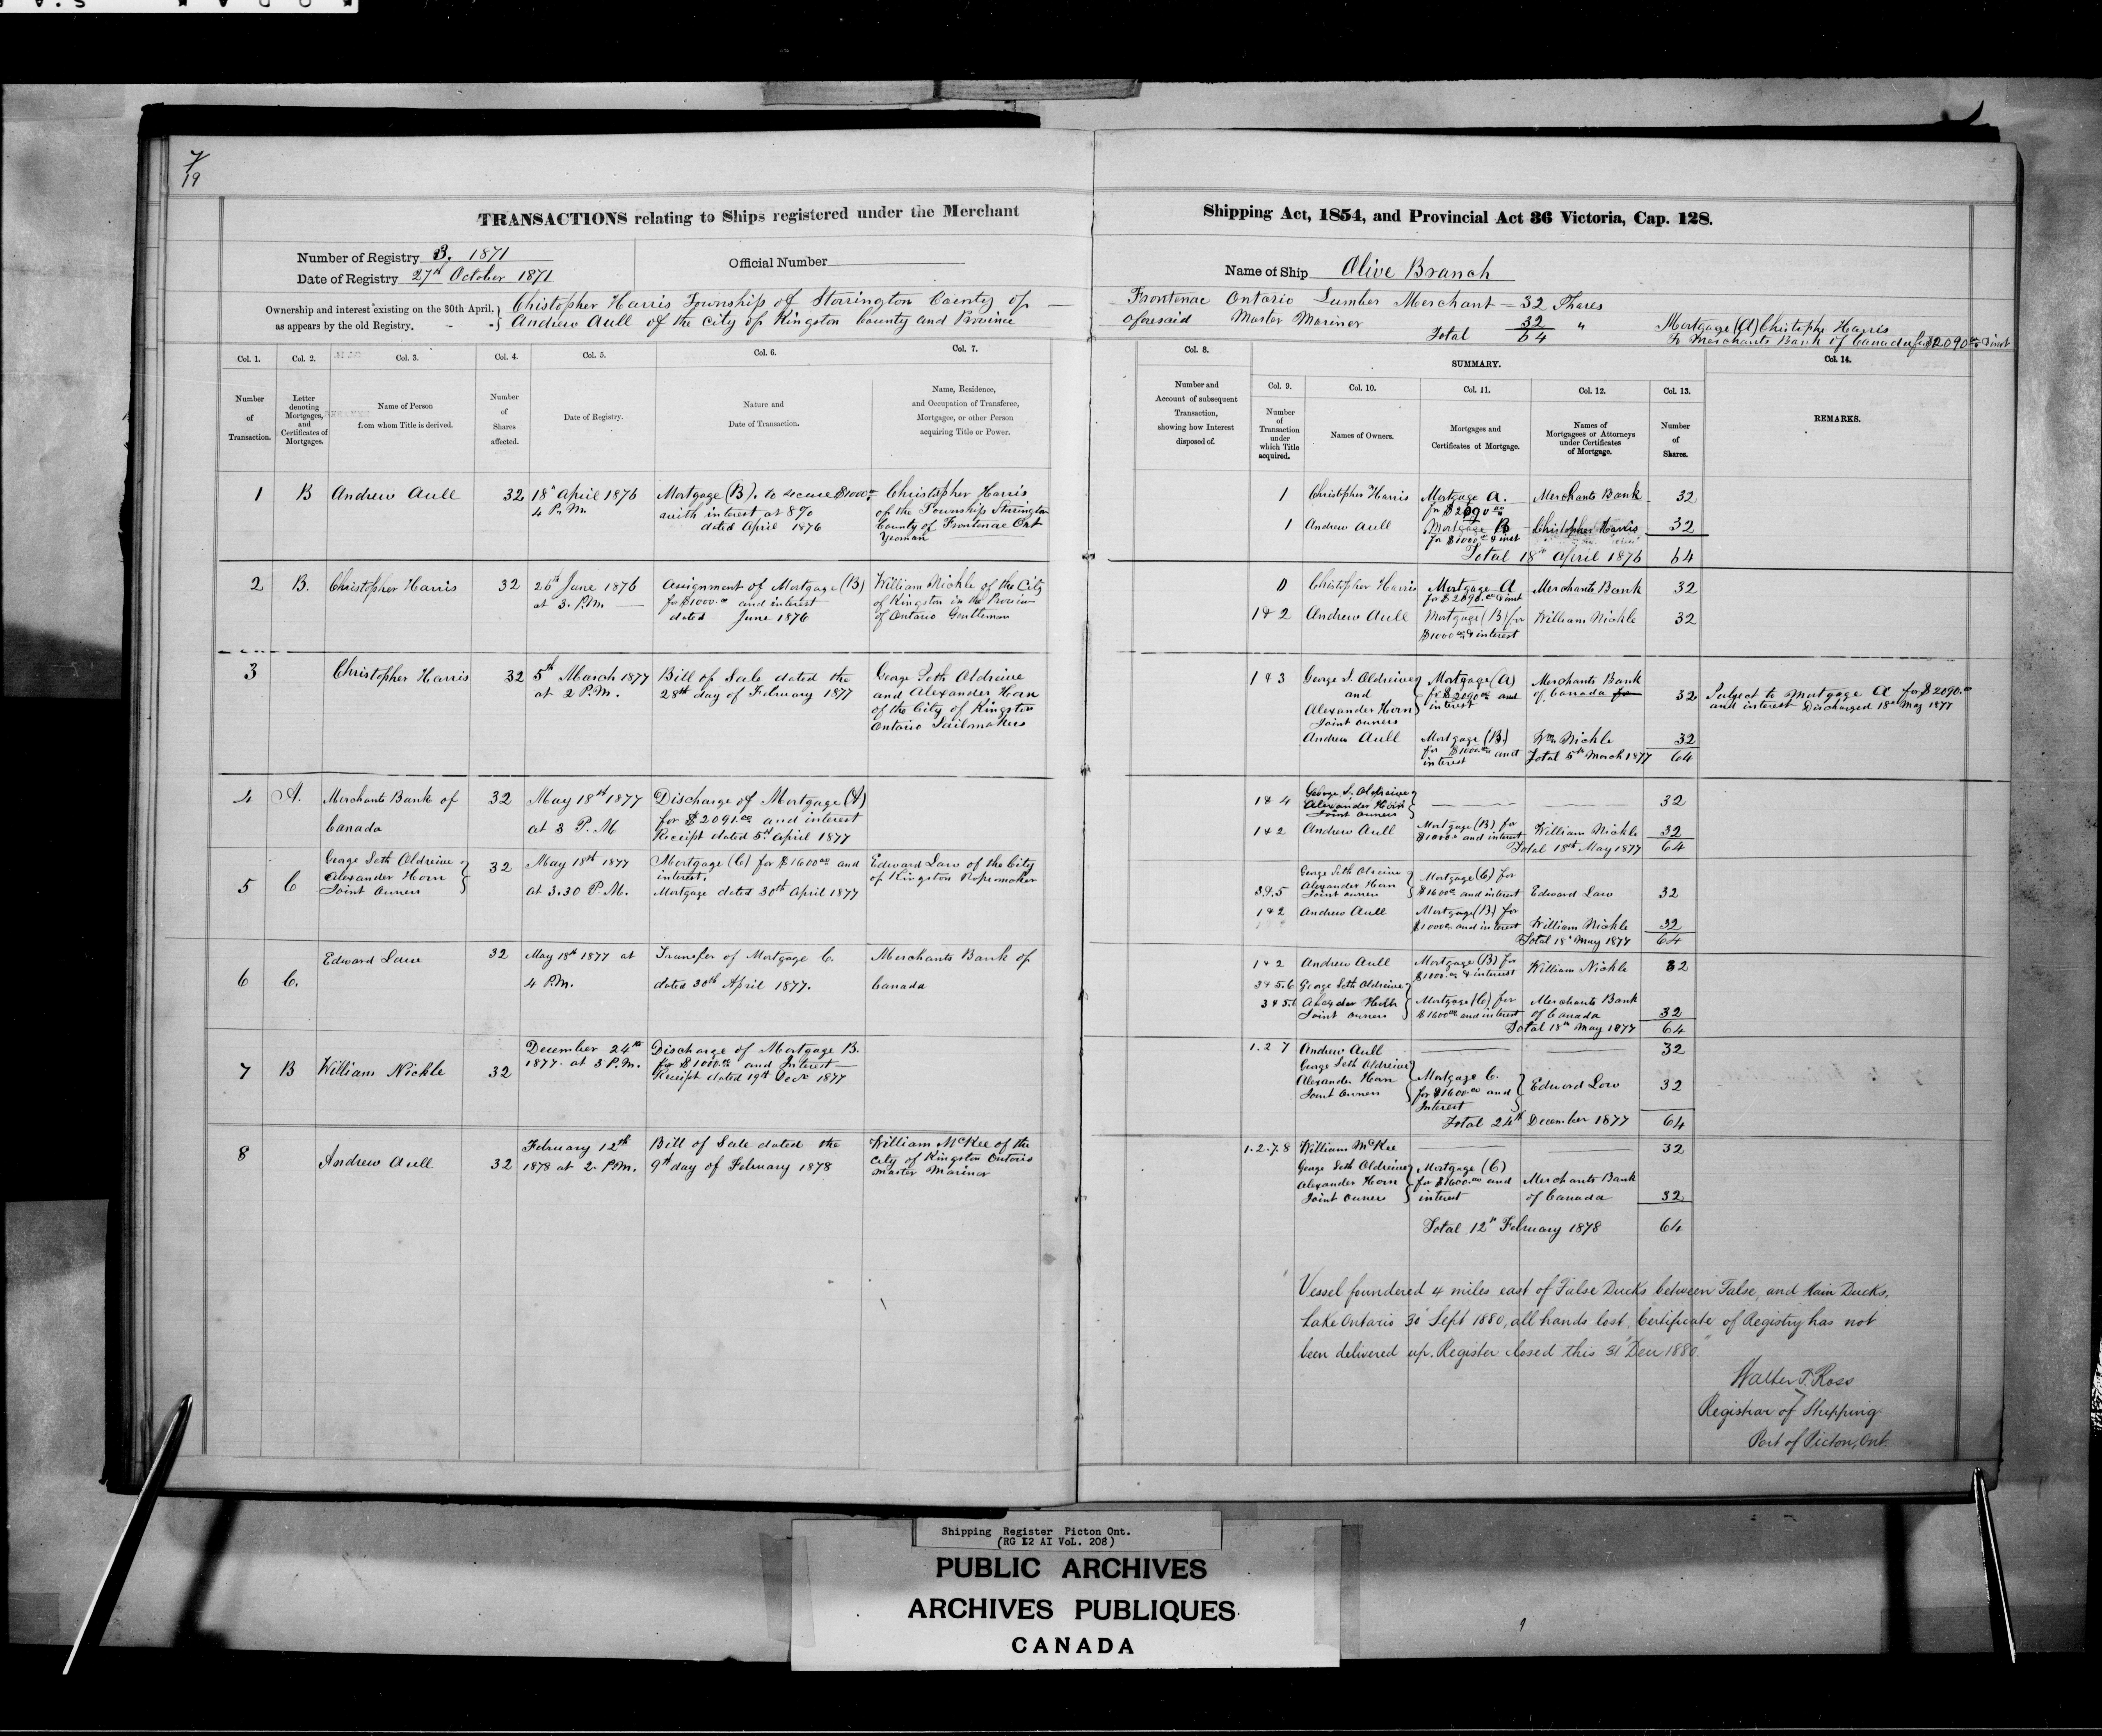 7/19
TRANSACTIONS relating to Ships registered under the Merchant
Number of Registry 3. 1871
Date of Registry 27th October 1871
Official Number
Ownership and interest existing on the 30th April,
as appears by the old Registry.
Christopher Harris Township of Storrington County of
Andrew Aull of the City of Kingston County and Province
Col. 1. Col. 2. Col. 3. Col. 4. Col. 5. Col. 6. Col. 7.
Number of Transaction.
Letter denoting Mortgages, and Certificates of Mortgages.
Name of Person from whom Title is derived.
Number of Shares affected.
Date of Registry.
Nature and Date of Transaction.
Name, Residence, and Occupation of Transferee, Mortgagee, or other Person acquiring Title or Power.
1 B Andrew Aull 32 18th April 1876 4 P.M.
Mortgage (B). to secure $1000.00
with interest at 8%
dated April 1876
Christopher Harris
of the Township Storrington
County of Frontenac Ont
Yeoman
2 B. Christopher Harris 32 26th June 1876 at 3. P.M
Assignment of Mortgage (B)
for $1000.00 and interest
dated June 1876
William Nickle of the City
of Kingston in the Province
of Ontario Gentleman
3 Christopher Harris 32 5th March 1877 at 2 P.M.
Bill of Sale dated the
28th day of February 1877
George Seth Oldreive
and Alexander Horn
of the City of Kingston
Ontario Sailmakers
4 A. Merchants Bank of Canada 32 May 18th 1877 at 3 P.M
Discharge of Mortgage (A)
for $2091.00 and interest
Receipt dated 5th April 1877
5 C George Seth Oldreive Alexander Horn Joint Owners 32 May 18th 1877 at 3.30 P.M.
Mortgage (C) for $1600.00 and
interest.
Mortgage dated 30th April 1877
Edward Law of the City
of Kingston Ropemaker
6 C. Edward Law 32 May 18th 1877 at 4 P.M.
Transfer of Mortgage C.
dated 30th April 1877.
Merchants Bank of
Canada
7 B William Nickle 32 December 24th 1877. at 3 P.M.
Discharge of Mortgage B.
for $1000.00 and Interest
Receipt dated 19th 1877
8 Andrew Aull 32 February 12th 1878 at 2. P.M.
Bill of Sale dated the
9th day of February 1878
William McKee of the
City of Kingston Ontario
Master Mariner
Shipping Act, 1854, and Provincial Act 36 Victoria, Cap. 128.
Name of Ship Olive Branch
Frontenac Ontario Lumber Merchant = 32 Shares
aforesaid Master Mariner 32 "
Total 64
Mortgage (A) Christophr Harris
To Merchants Bank of Canada for $2090.00 & inst
Col. 8. SUMMARY. Col. 14.
Col. 9. Col. 10. Col. 11. Col. 12. Col. 13.
Number and Account of subsequent Transaction, showing how Interest disposed of.
Number of Transaction under which Title acquired.
Names of Owners.
Mortgages and Certificates of Mortgage.
Names of Mortgagees or Attorneys under Certificates of Mortgage.
Number of Shares.
REMARKS.
1 Christopher Harris Mortgage A. for $2090.00 Merchants Bank 32
1 Andrew Aull Mortgage B for $1000.00 & inst Christopher Harris 32
Total 18th April 1876 64
0 Christopher Harris Mortgage A for $2090.00 & inst Merchants Bank 32
1 & 2 Andrew Aull Mortgage (B) for $1000.00 & interest William Nickle 32
1 & 3 George S. Oldreive and Alexander Horn Joint Owners Mortgage (A) for $2090.00 and interest Merchants Bank of Canada for 32
Subject to Mortgage A for $2090.00
and interest Discharged 18th May 1877
Andrew Aull Mortgage (B) for $1000.00 and interest Wm Nickle 32
Total 5th March 1877 64
1 & 4 George S. Oldreive Alexander Horn Joint Owners 32
1 & 2 Andrew Aull Mortgage (B) for $1000 and interest William Nickle 32
Total 18th May 1877 64
3&5 George Seth Olreive Alexander Horn Joint owners Mortgage (C) for $1600.00 and interest Edward Law 32
1 & 2 Andrew Aull Mortgage (B) for $1000.00 and interest William Nickle 32
Total 18th May 1877 64
1 & 2 Andrew Aull Mortgage (B) for $1000.00 & interest William Nickle 32
3 & 5.6 George Seth Oldreive
3 & 5.6 Joint Owners Mortgage (C) for $1600.00 and interest Merchants Bank of Canada 32
Total 18th May 1877 64
1. 2 7 Andrew Aull 32
George Seth Oldreive Alexander Horn Joint Owners Mortgage C. for $1600.00 and Interest Edward Low 32
Total 24th December 1877 64
1. 2. 7. 8 William McKee 32
George Seth Oldreive Alexander Horn Joint Owners Mortgage (C) for $1600.00 and interest Merchants Bank of Canada 32
Total 12th February 1878 64
Vessel foundered 4 miles east of False Ducks between False, and Main Ducks,
Lake Ontario 30 Sept 1880, all hands lost, Certificate of Registry has not
been delivered up. Register closed this 31 Decr 1880.
Walter T. Ross
Registrar of Shipping
Port of Picton, Ont.
Shipping Register Picton Ont.
(RG 12 A1 VoL. 208)
PUBLIC ARCHIVES
ARCHIVES PUBLIQUES
CANADA